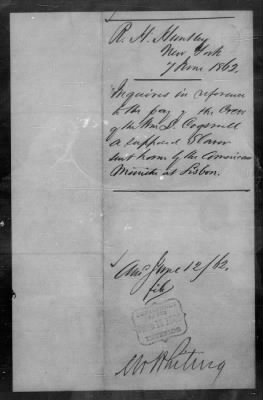 R. H. Huntley
New York
7 June 1862.
Inquires in reference
to the pay of the Crew
of the Wm L. Cogswell
a supposed Slaver
sent home by the American
Minister at Lisbon.
Ansd June 12/62.
file
Mr Whiting